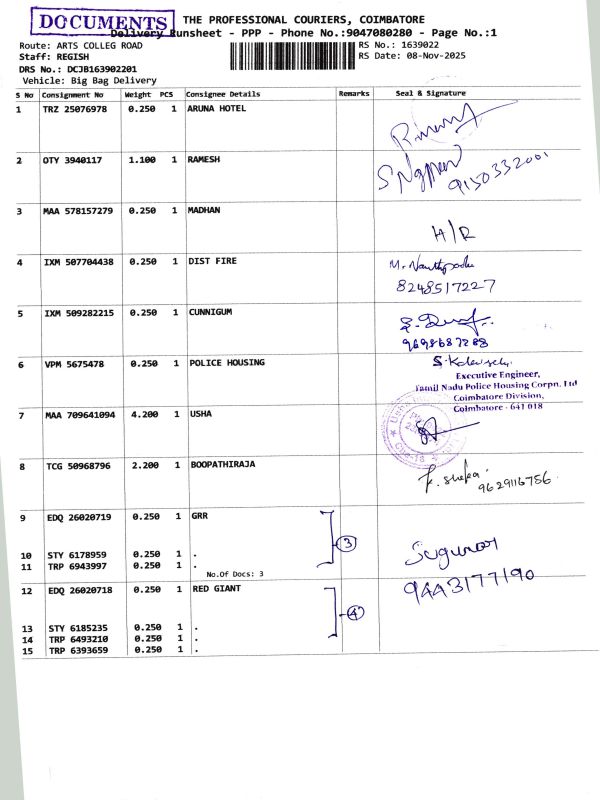 DOCUMENTS
THE PROFESSIONAL COURIERS, COIMBATORE
Delivery Runsheet - PPP - Phone No.:9047080280 - Page No.:1
Route: ARTS COLLEG ROAD
RS No.: 1639022
Staff: REGISH
RS Date: 08-Nov-2025
DRS No.: DCJB163902201
Vehicle: Big Bag Delivery
S No Consignment No Weight PCS Consignee Details Remarks Seal & Signature
1 TRZ 25076978 0.250 1 ARUNA HOTEL
2 OTY 3940117 1.100 1 RAMESH
9150332001
3 MAA 578157279 0.250 1 MADHAN
H/R
4 IXM 507704438 0.250 1 DIST FIRE
8248517227
5 IXM 509282215 0.250 1 CUNNIGUM
9698687288
6 VPM 5675478 0.250 1 POLICE HOUSING
Executive Engineer,
Tamil Nadu Police Housing Corpn. Ltd
Coimbatore Division,
Coimbatore - 641 018
7 MAA 709641094 4.200 1 USHA
8 TCG 50968796 2.200 1 BOOPATHIRAJA
9629116756.
9 EDQ 26020719 0.250 1 GRR
3
10 STY 6178959 0.250 1 .
11 TRP 6943997 0.250 1 .
No.Of Docs: 3
9443177190
12 EDQ 26020718 0.250 1 RED GIANT
4
13 STY 6185235 0.250 1 .
14 TRP 6493210 0.250 1 .
15 TRP 6393659 0.250 1 .